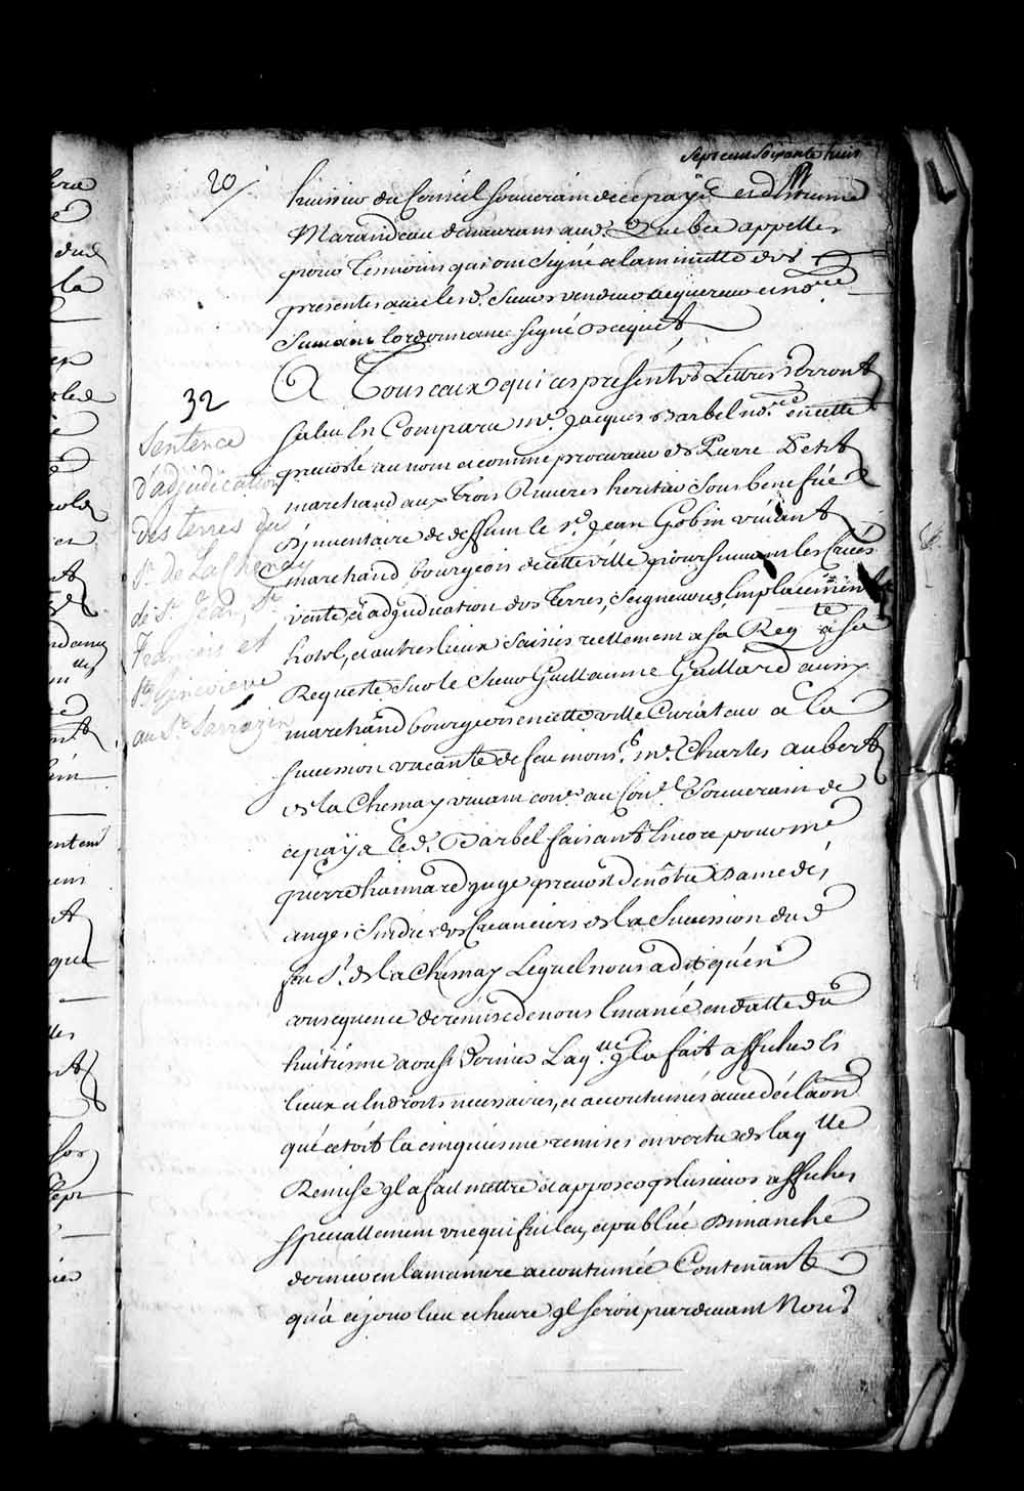 Sept cent Soixante huit
20/
huissier du Conseil Souverain de ce paÿs et Estienne
Marandeau demeurans aud. Quebec appellés
pour Temoins qui ont Signé a la minutte des
presentes avec lesd. Sieurs vendeur acquereur et no.re
Suivant l'ordonnance signé Becquet
32
Sentence
d'adjudication
des terres du
Sr. de La Chenay
de St. Jean, St.
François et
Ste Geneviève
au Sr. Sarrazin
A Tous ceux qui ces presentes Lettres verront
Salut En Comparu me. Jacques Barbel no.re en cette
prevosté au nom et comme procureur de Pierre Petit
marchand aux Trois Rivieres heritier Sous benefice
d'Jnventaire de deffunt le Sr. Jean Gobin vivant
marchand bourgeois de cette ville poursuivant les Criées
vente, et adjudication des Terres, Seigneuries, Emplacement
hotel, et autres lieux Saisis reellement a Sa Reqte a Sa
Requeste Sur le Sieur Guillaume Gaillard aussy
marchand bourgeois en cette ville Curateur a la
Succession vacante de feu mons.r me. Charles aubert
de la Chenay vivant con.er au Con.el Souverain de
ce paÿs led. Barbel faisant Encore pour me
pierre haimard juge prevost de nôtre Dame des
anges Sindic des Creanciers de la Succession dud
feu Sr. de la Chenay Lequel nous a dit qu'en
consequence de remise de nous Emanée en datte du
huitiesme aoust Dernier Laq.lle Jl a fait afficher Es
lieux et Endroits necessaires, et accoutumés avec déclâon
qué cetoit la cinquiesme remises en vertu de laq.lle
Remise Jl a fait mettre et apposer plusieurs affiches
speciallement une qui fut leu, et publiée Dimanche
dernier en la maniere accoutumée Contenant
qu'a ce jour lieu et heure Jl seroit pardevant Nous